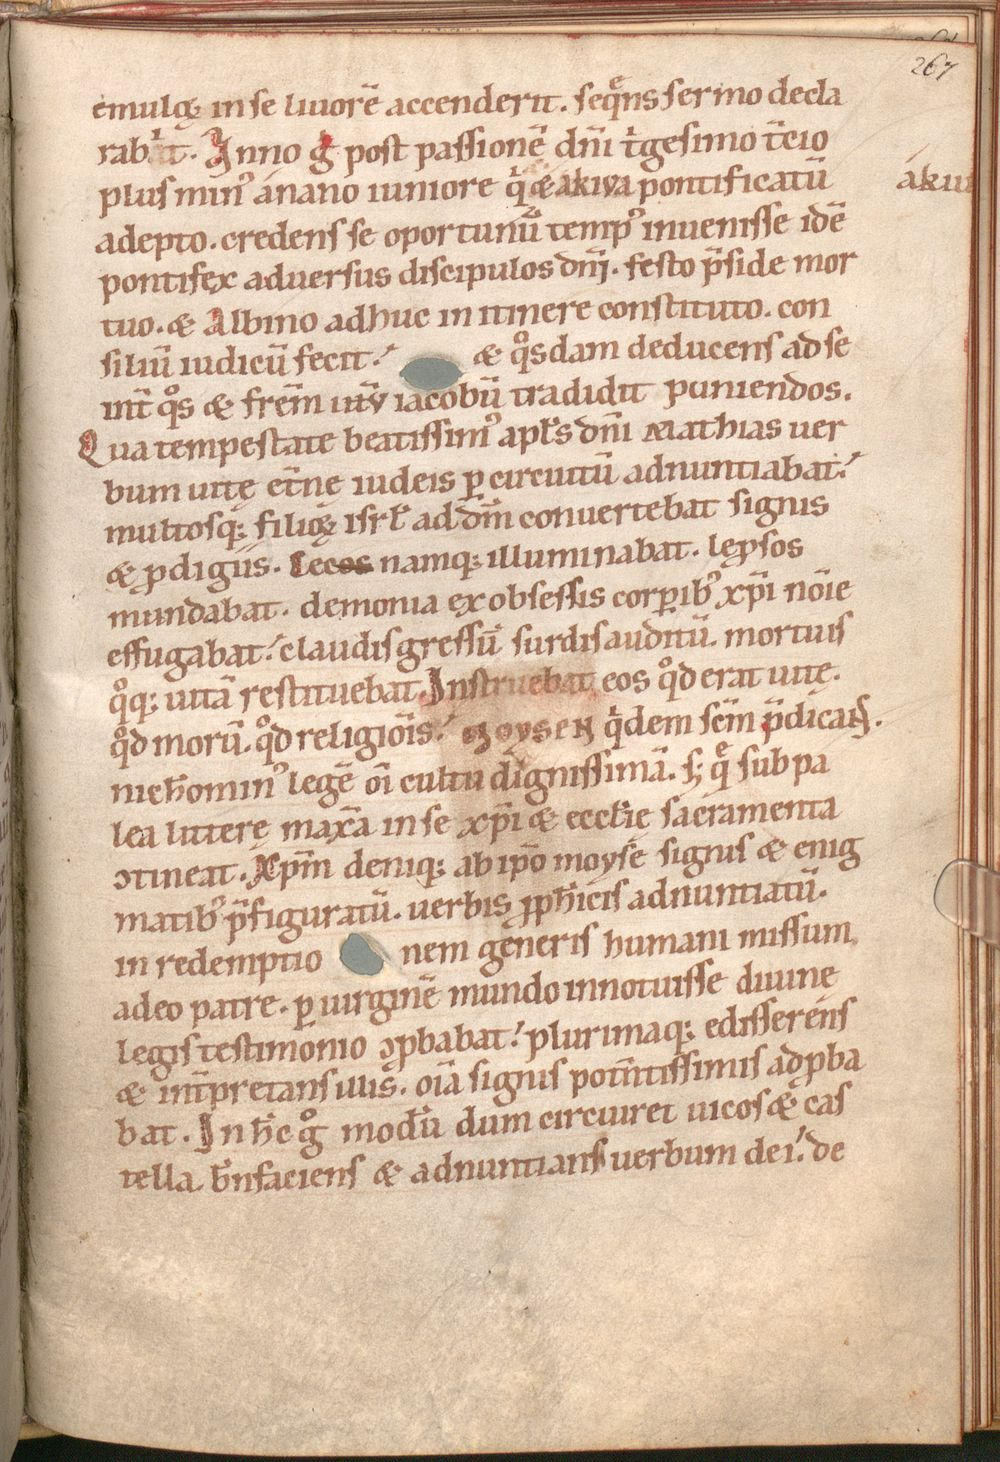 267
emulꝗ in se liuorē accenderit. seqͤns sermo decla
rabit. Anno gͦ post passionē dn̄i tͥgesimo t̄cio
plus minꝰ ánano iuniore qͥ & akiva pontificatū
akiu
adepto. credens se oportunū tempꝰ inuenisse idē
pontifex aduersus discipulos dn̄i. festo p̄side mor
tuo. & Albino adhuc in itinere constituto. con
siliū iudicū fecit. & qͦsdam deducens ad se
int̄ qͦs & frēm iacobū tradidit puniendos.
Qua tempestate beatissimꝰ apƚs dn̄i Mathias uer
bum uitę et̄ne iudeis ꝑ circuitū adnuntiabat.
multosqꝫ filioꝝ isrƚ ad dn̄m conuertebat signis
& ꝓdigiis. Cecos namqꝫ illuminabat. lepsos
mundabat. demonia ex obsessis corꝑibꝰ xp̄i nōie
effugabat. claudis gressū surdis auditū. mortuis
qͦqꝫ uitā restituebat. Instruebat eos qͦd erat uitę.
qͦd morū. qͦd religiōis. Moysen qͥdem sc̄m p̄dicans.
nichominꝰ legē om̄i cultu dignissimā. sꝫ qͤ sub pa
lea litterę maxīa in se xp̄i & eccƚię sacramenta
ↄtineat. Xp̄m deniqꝫ ab ip̄o moyse signis & enig
matibꝰ p̄figuratū. uerbis ꝓph̄icis adnuntiatū.
in redemptio nem generis humani missum
a deo patre. ꝑ uirginē mundo innotuisse diuinę
legis testimonio ↄꝓbabat. plurimaqꝫ edisserens
& int̄pretans illis. oīa signis potn̄tissimis adꝓba
bat. In hc̄ gͦ modū dum circuiret uicos & cas
tella bn̄faciens & adnuntians uerbum dei. de